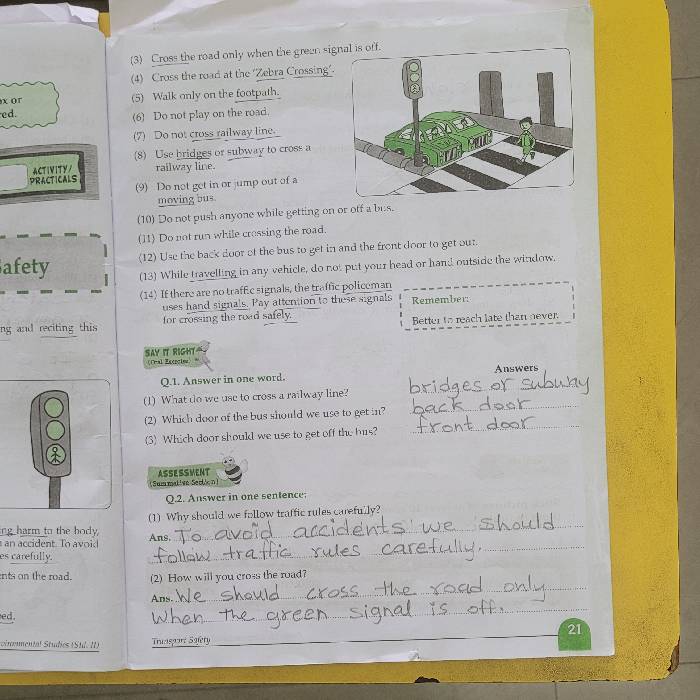 ed.
ACTIVITY/
PRACTICALS
afety
ng and reciting this
ng harm to the body.
an accident. To avoid
es carefully.
nts on the road.
ed.
Environmental Studies (Std. II)
(3) Cross the road only when the green signal is off.
(4) Cross the road at the 'Zebra Crossing'.
(5) Walk only on the footpath.
(6) Do not play on the road.
(7) Do not cross railway line.
(8) Use bridges or subway to cross a
railway line.
(9) Do not get in or jump out of a
moving bus.
(10) Do not push anyone while getting on or off a bus.
(11) Do not run while crossing the road.
(12) Use the back door of the bus to get in and the front door to get out.
(13) While travelling in any vehicle, do not put your head or hand outside the window.
(14) If there are no traffic signals, the traffic policeman
uses hand signals. Pay attention to these signals
for crossing the road safely.
Remember:
Better to reach late than never.
SAY IT RIGHT
(Oral Exercise)
Q.1. Answer in one word.
Answers
(1) What do we use to cross a railway line? bridges or subway
(2) Which door of the bus should we use to get in? back door
(3) Which door should we use to get off the bus? front door
ASSESSMENT
(Summative Section)
Q.2. Answer in one sentence:
(1) Why should we follow traffic rules carefully?
Ans. To avoid accidents we should
follow traffic rules carefully.
(2) How will you cross the road?
Ans. We should cross the road only
when the green signal is off.
Transport Safety
21